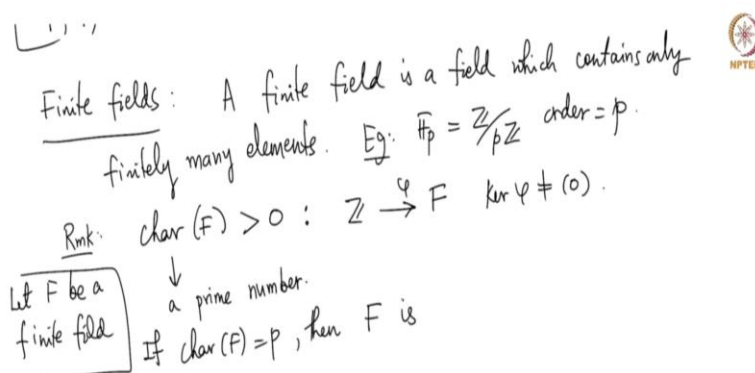 Finite fields: A finite field is a field which contains only
NPTEL
finitely many elements. Eg: 𝔽p = ℤ/pℤ order = p.
Rmk: char (F) > 0 : ℤ →φ F ker φ ≠ (0).
↓
a prime number.
Let F be a
finite field
If char (F) = p, then F is